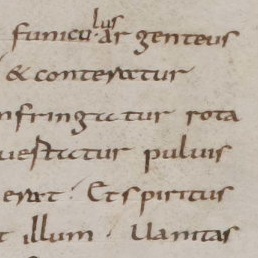 funicu lus ar genteus
& conteratur
nfringatur rota
uertatur puluis
erat . Et spiritus
t illum . Uanitas